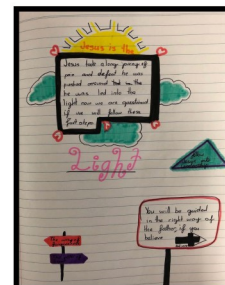 Jesus is the
Jesus took a long journey of
pain and defeat he was
pushed around but in the
he was led into the
light now we are questioned
if we will follow these
foot steps.
Light
You will be guided
in the right way of
the father, if you
believe.